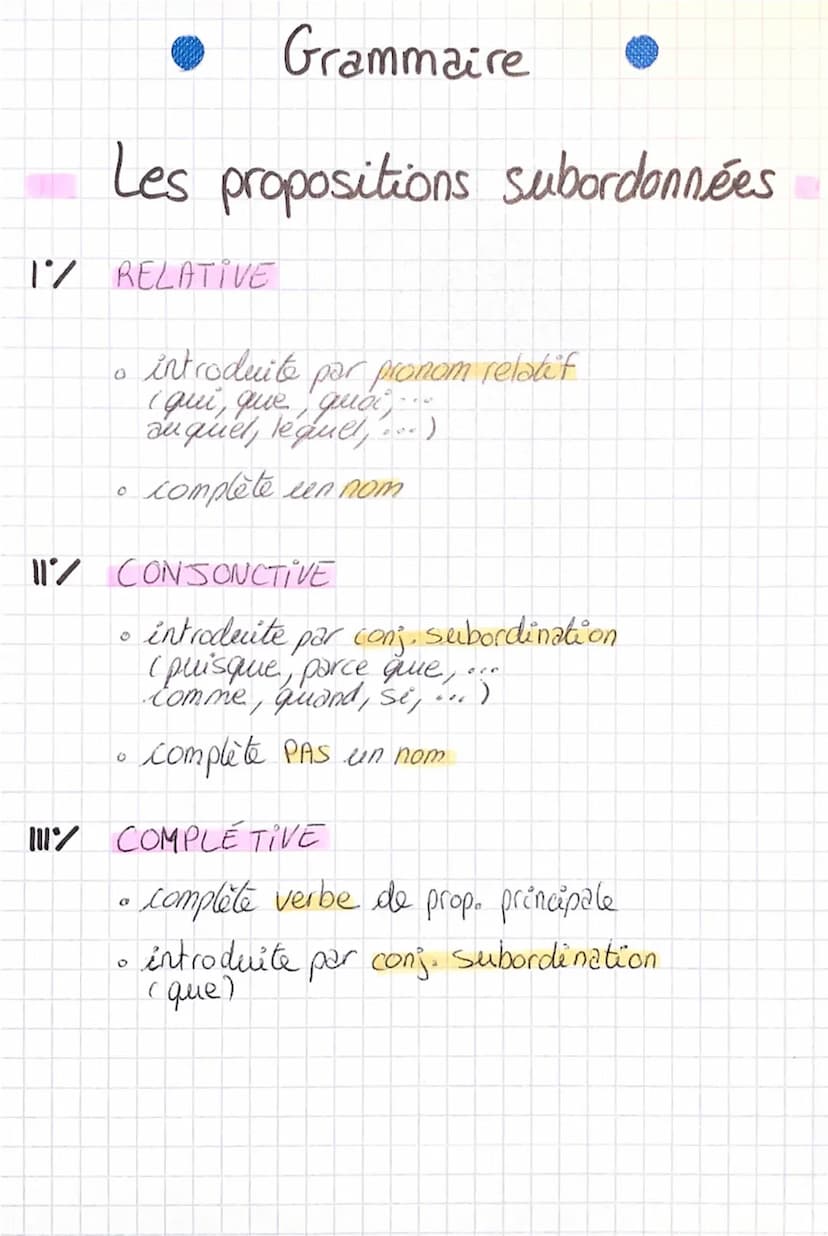 Grammaire
Les propositions subordonnées
I°/ RELATIVE
o introduite par pronom relatif
(qui, que, quoi, ...
auquel, lequel, ...)
o complète un nom
II°/ CONJONCTIVE
o introduite par conj. subordination
(puisque, parce que, ...
comme, quand, si, ...)
o complète PAS un nom
III°/ COMPLÉTIVE
o complète verbe de prop. principale
o introduite par conj. subordination
(que)